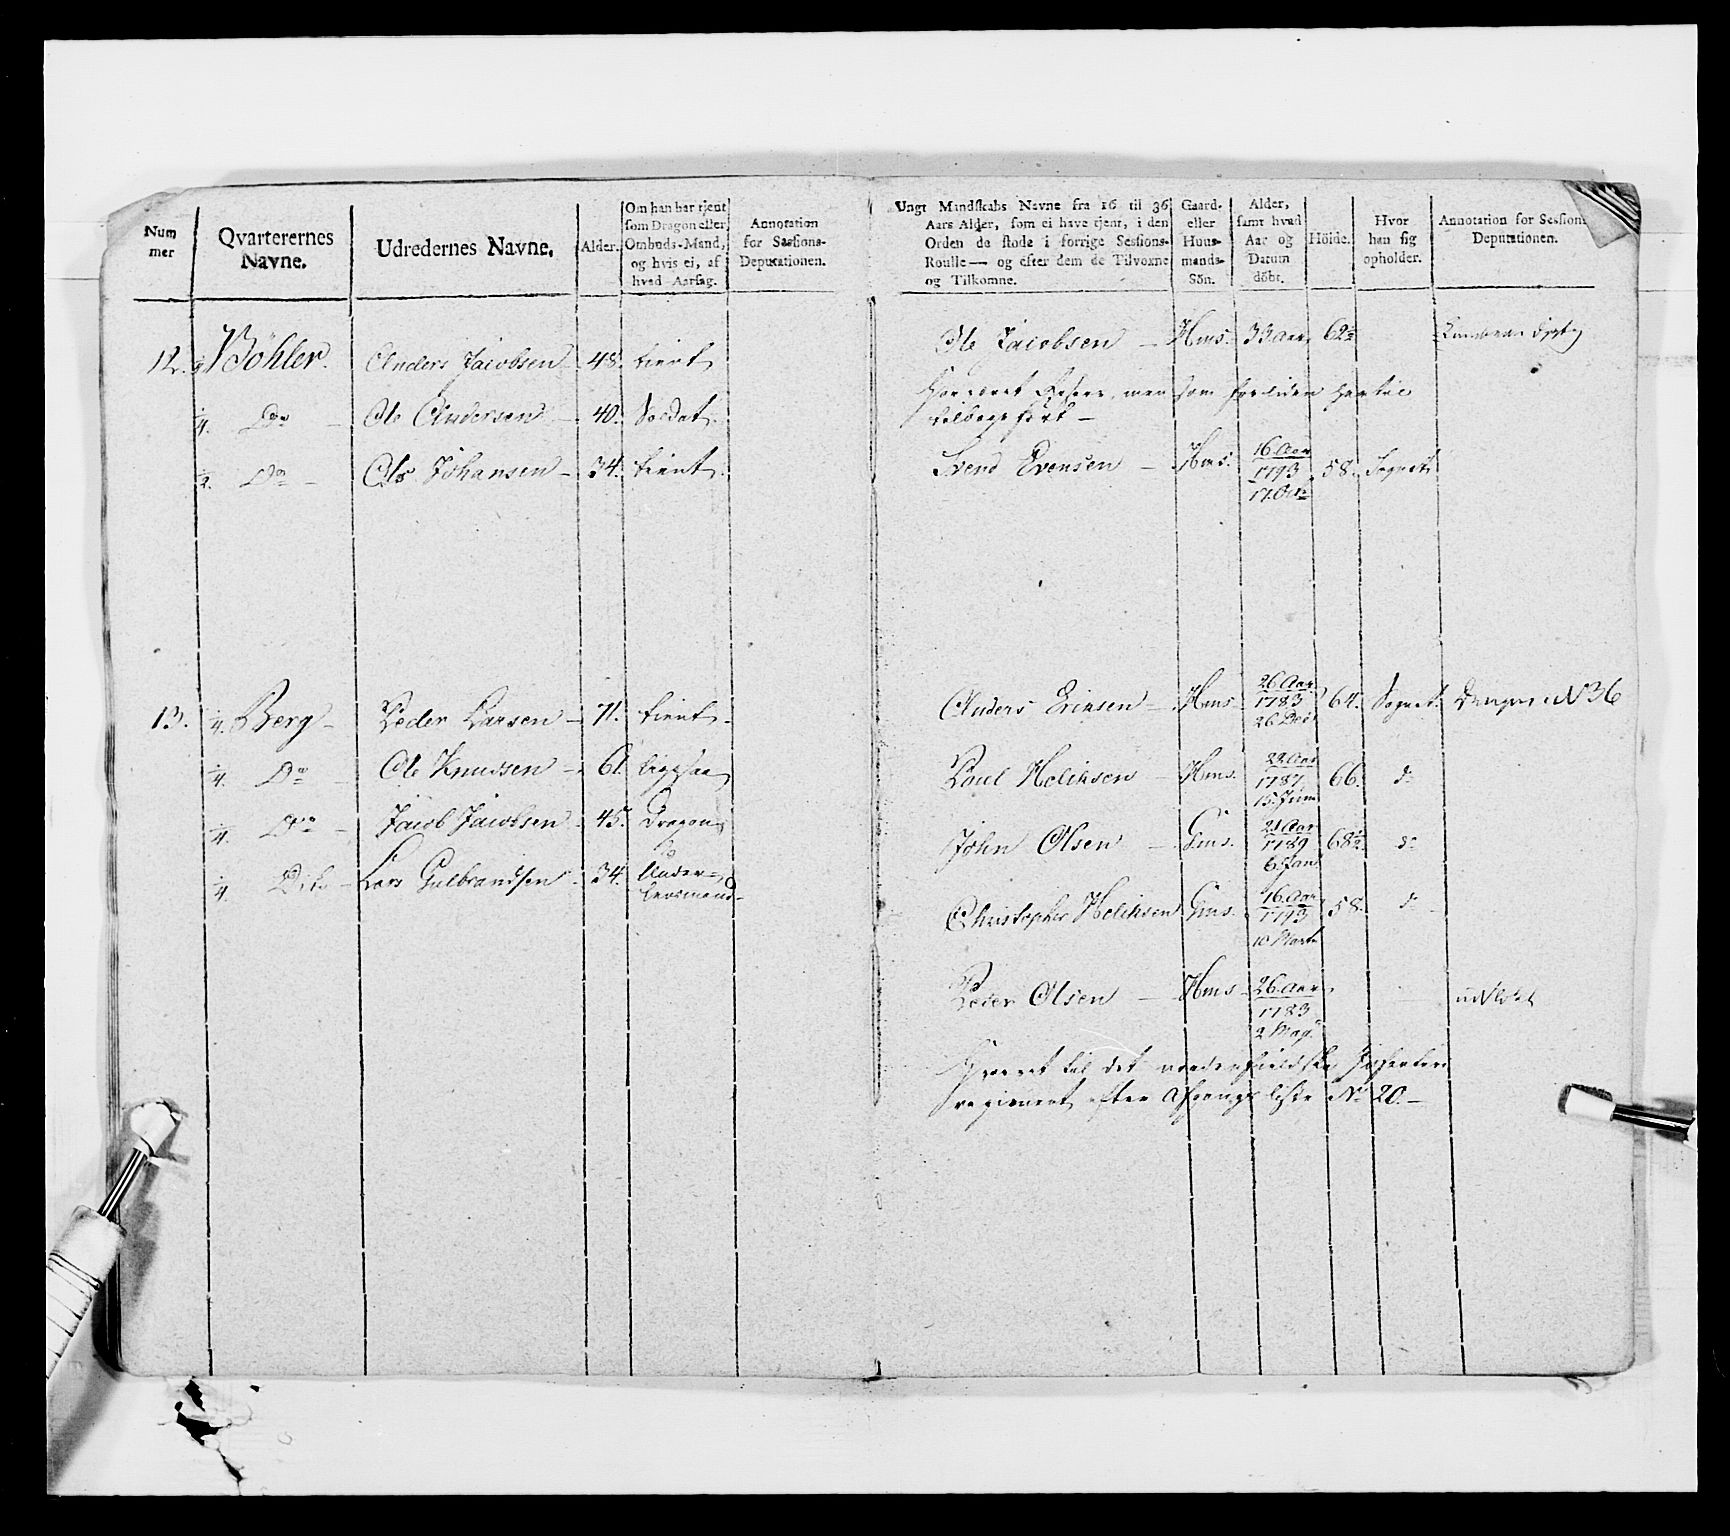 Num
mer
Qvarterernes
Navne.
Udredernes Navne.
Alder.
Om han har tjent
som Dragon eller
Ombuds-Mand,
og hvis ei, af
hvad Aarsag.
Annotation
for Sessions-
Deputationen.
12. Böhler. Anders Jacobsen 48. tient
1/4. Do Ole Andersen 40. Soldat.
Do Ole Johansen 34. tient.
13. 1/4. Berg Peder Larsen 71. tient
1/4 Do Ole Knudsen 61.
1/4. Do Jacob Jacobsen 45. Dragon
1/4. Dito Lars Gulbrandsen 34. Under-
lensmand
Ungt Mandskabs Navne fra 16 til 36
Aars Alder, som ei have tjent, i den
Orden de stode i forrige Sessions-
Roulle — og efter dem de Tilvoxne
og Tilkomne.
Gaard-
eller
Huus-
mands-
Sön.
Alder,
samt hvad
Aar og
Datum
döbt.
Höide.
Hvor
han sig
opholder.
Annotation for Sessions-
Deputationen.
Ole Jacobsen Hms. 33 Aar 62½
tilbageført
Svend Evensen Hms. 16 Aar
1793
17. Oct 58. Sognet
Anders Ericsen Hms 26 Aar
1783
26 Dec 64. Sognet Dragon N 36
Poul Melchsen Hms. 22 Aar
1787
15. Juni 66. do
John Olsen Gms. 21 Aar
1789
6 Jan 68½ do
Christopher Melchsen Gms. 16 Aar
1793
10 Marti 58. do
Peder Olsen Hms 26 Aar
1783
2 May
til det nordenfieldske Infanterie
regiment efter Afgangs liste No 20.